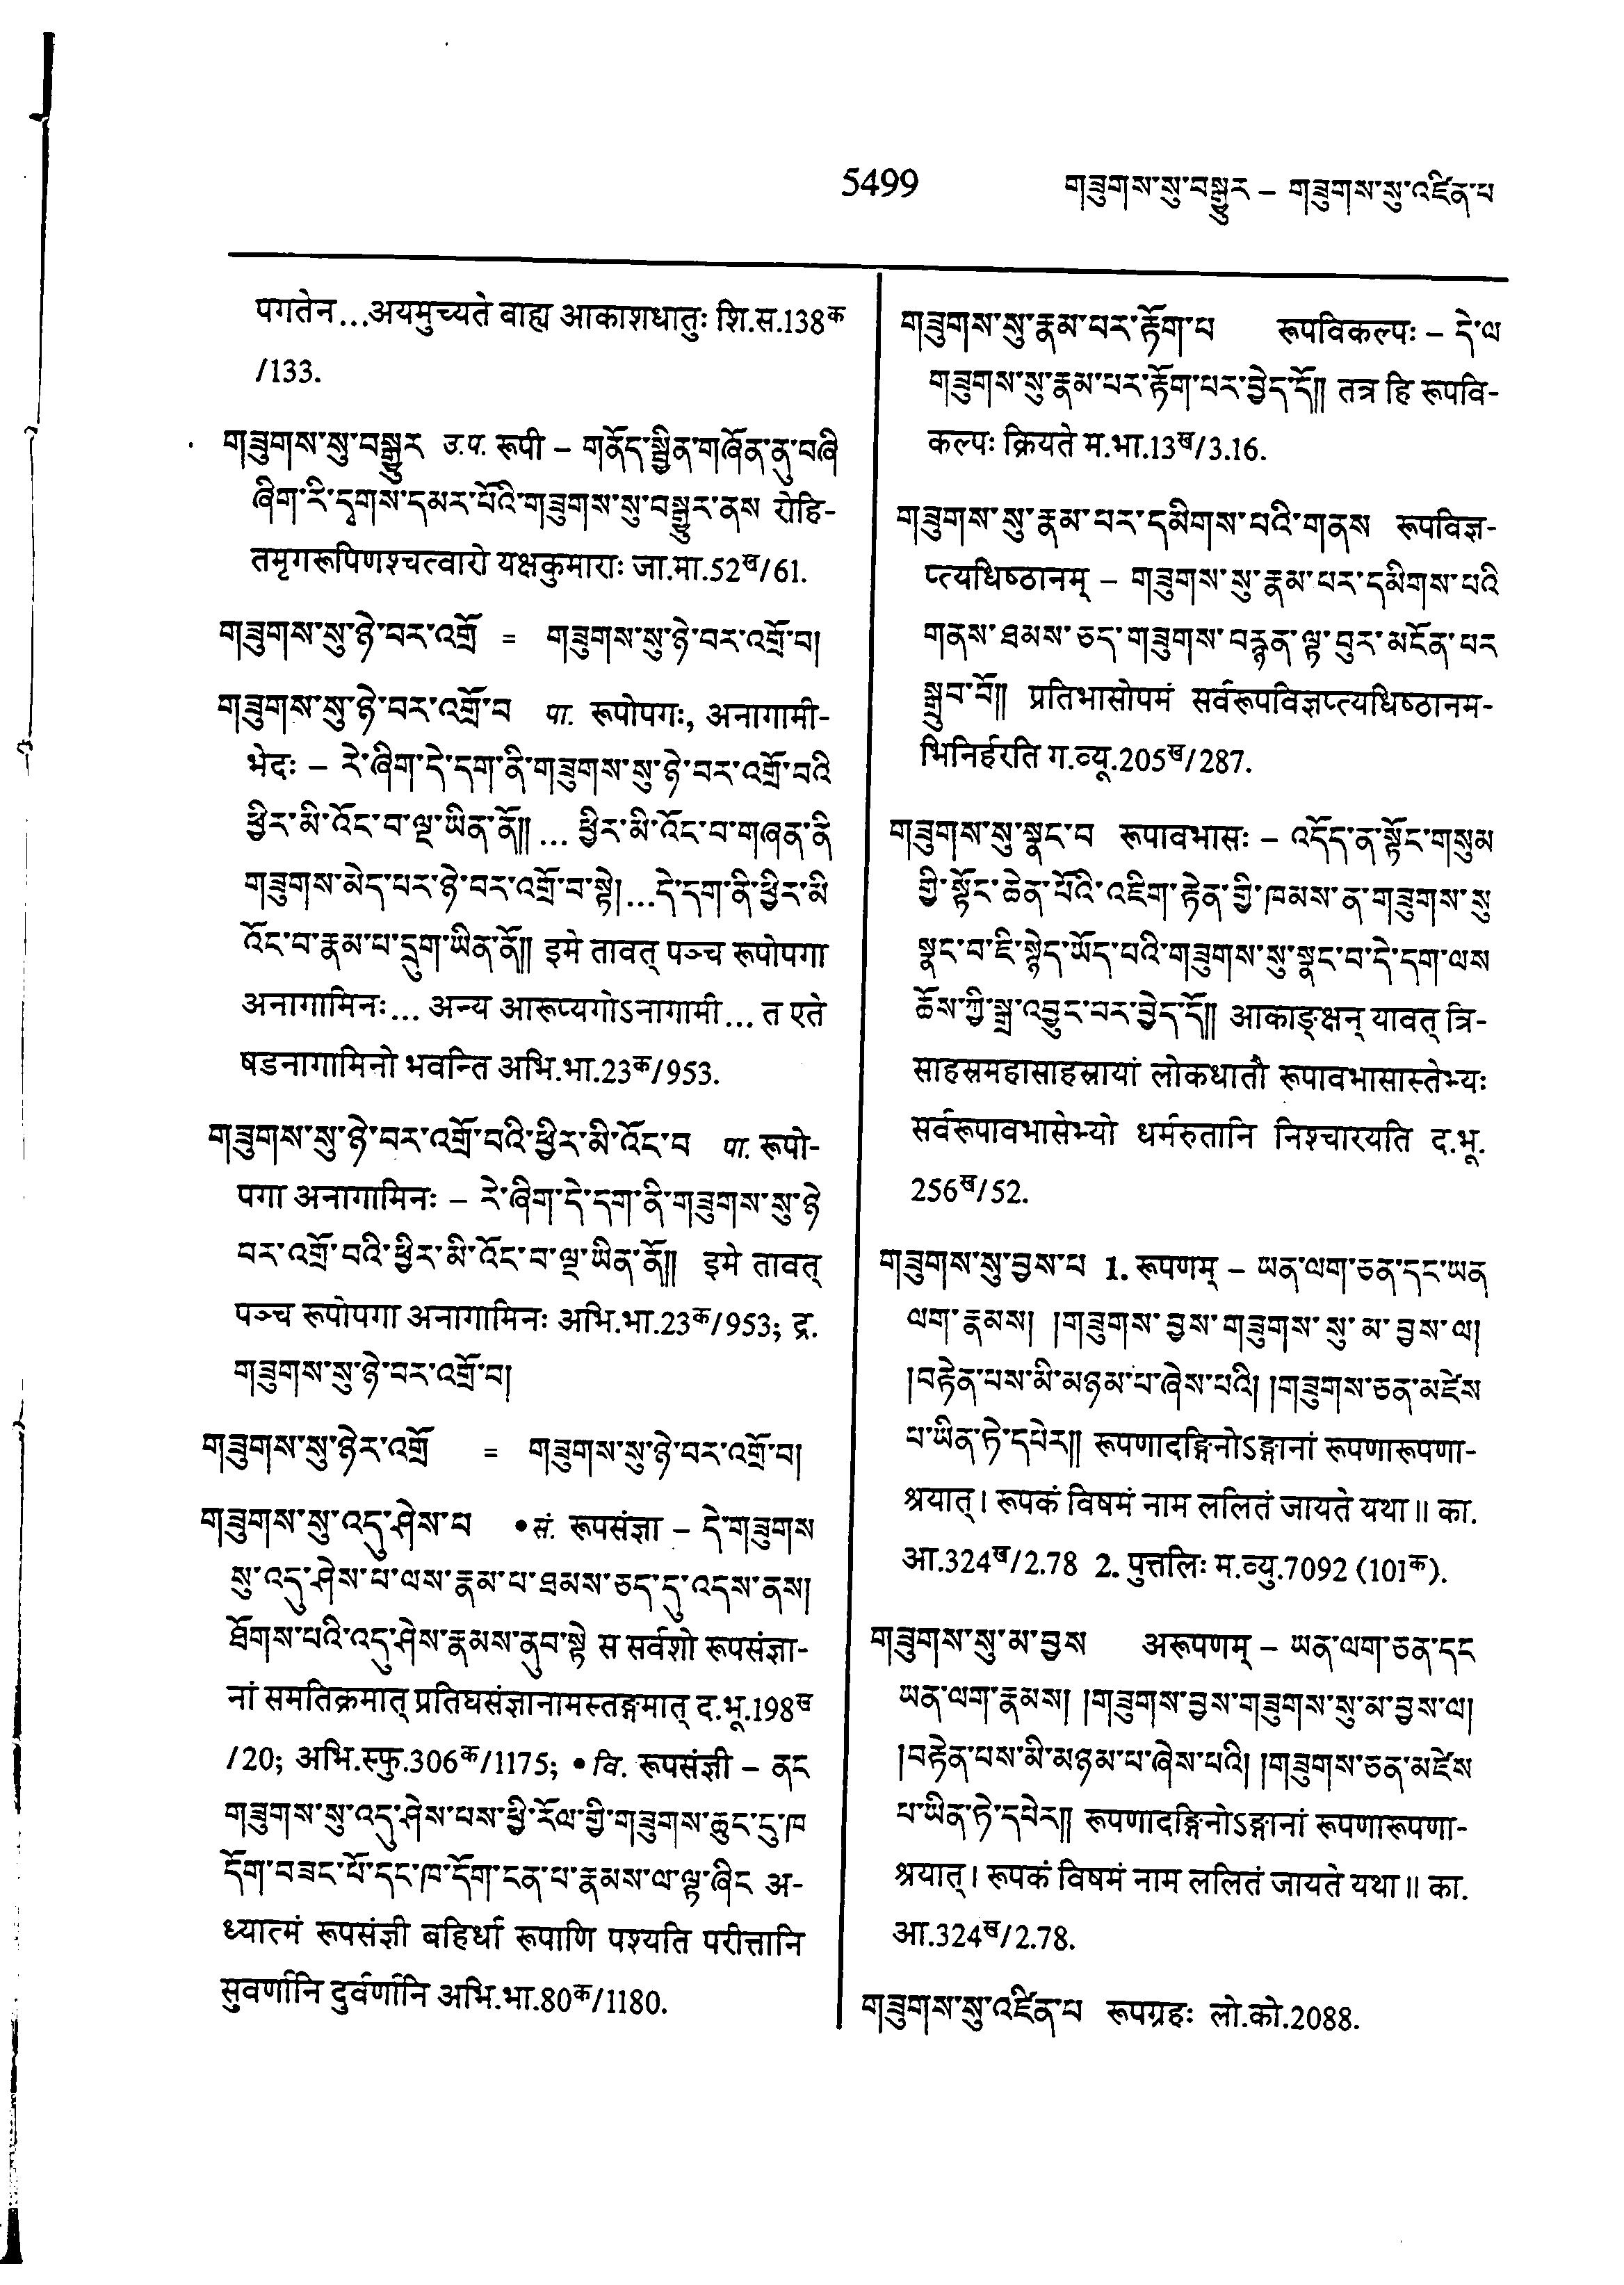 5499
གཟུགས་སུ་བསྒྱུར – གཟུགས་སུ་འཛིན་པ
पगतेन...अयमुच्यते बाह्य आकाशधातुः शि.स.138क
/133.
གཟུགས་སུ་བསྒྱུར उ.प. रूपी – གནོད་སྦྱིན་གཞོན་ནུ་བཞི
ཞིག་རི་དྭགས་དམར་པོའི་གཟུགས་སུ་བསྒྱུར་ནས रोहि-
तमृगरूपिणश्चत्वारो यक्षकुमाराः जा.मा.52ख/61.
གཟུགས་སུ་ཉེ་བར་འགྲོ = གཟུགས་སུ་ཉེ་བར་འགྲོ་བ།
གཟུགས་སུ་ཉེ་བར་འགྲོ་བ पा. रूपोपगः, अनागामी-
भेदः – རེ་ཞིག་དེ་དག་ནི་གཟུགས་སུ་ཉེ་བར་འགྲོ་བའི
ཕྱིར་མི་འོང་བ་ལྔ་ཡིན་ནོ།། ... ཕྱིར་མི་འོང་བ་གཞན་ནི
གཟུགས་མེད་པར་ཉེ་བར་འགྲོ་བ་སྟེ། ...དེ་དག་ནི་ཕྱིར་མི
འོང་བ་རྣམ་པ་དྲུག་ཡིན་ནོ།། इमे तावत् पञ्च रूपोपगा
अनागामिनः... अन्य आरूप्यगोऽनागामी... त एते
षडनागामिनो भवन्ति अभि.भा.23क/953.
གཟུགས་སུ་ཉེ་བར་འགྲོ་བའི་ཕྱིར་མི་འོང་བ पा. रूपो-
पगा अनागामिनः – རེ་ཞིག་དེ་དག་ནི་གཟུགས་སུ་ཉེ
བར་འགྲོ་བའི་ཕྱིར་མི་འོང་བ་ལྔ་ཡིན་ནོ།། इमे तावत्
पञ्च रूपोपगा अनागामिनः अभि.भा.23क/953; द्र.
གཟུགས་སུ་ཉེ་བར་འགྲོ་བ།
གཟུགས་སུ་ཉེར་འགྲོ = གཟུགས་སུ་ཉེ་བར་འགྲོ་བ།
གཟུགས་སུ་འདུ་ཤེས་པ • सं. रूपसंज्ञा – དེ་གཟུགས
སུ་འདུ་ཤེས་པ་ལས་རྣམ་པ་ཐམས་ཅད་དུ་འདས་ནས།
ཐོགས་པའི་འདུ་ཤེས་རྣམས་ནུབ་སྟེ स सर्वशो रूपसंज्ञा-
नां समतिक्रमात् प्रतिघसंज्ञानामस्तङ्गमात् द.भू.198ख
/20; अभि.स्फु.306क/1175; • वि. रूपसंज्ञी – ནང
གཟུགས་སུ་འདུ་ཤེས་པས་ཕྱི་རོལ་གྱི་གཟུགས་ཆུང་ངུ་ཁ
དོག་བཟང་པོ་དང་ཁ་དོག་ངན་པ་རྣམས་ལ་ལྟ་ཞིང अ-
ध्यात्मं रूपसंज्ञी बहिर्धा रूपाणि पश्यति परीत्तानि
सुवर्णानि दुर्वर्णानि अभि.भा.80क/1180.
གཟུགས་སུ་རྣམ་པར་རྟོག་པ रूपविकल्पः – དེ་ལ
གཟུགས་སུ་རྣམ་པར་རྟོག་པར་བྱེད་དོ།། तत्र हि रूपवि-
कल्पः क्रियते म.भा.13ख/3.16.
གཟུགས་སུ་རྣམ་པར་དམིགས་པའི་གནས रूपविज्ञ-
प्त्यधिष्ठानम् – གཟུགས་སུ་རྣམ་པར་དམིགས་པའི
གནས་ཐམས་ཅད་གཟུགས་བརྙན་ལྟ་བུར་མངོན་པར
སྒྲུབ་བོ།། प्रतिभासोपमं सर्वरूपविज्ञप्त्यधिष्ठानम-
भिनिर्हरति ग.व्यू.205ख/287.
གཟུགས་སུ་སྣང་བ रूपावभासः – འདོད་ན་སྟོང་གསུམ
གྱི་སྟོང་ཆེན་པོའི་འཇིག་རྟེན་གྱི་ཁམས་ན་གཟུགས་སུ
སྣང་བ་ཇི་སྙེད་ཡོད་པའི་གཟུགས་སུ་སྣང་བ་དེ་དག་ལས
ཆོས་ཀྱི་སྒྲ་འབྱུང་བར་བྱེད་དོ།། आकाङ्क्षन् यावत् त्रि-
साहस्रमहासाहस्रायां लोकधातौ रूपावभासास्तेभ्यः
सर्वरूपावभासेभ्यो धर्मरुतानि निश्चारयति द.भू.
256ख/52.
གཟུགས་སུ་བྱས་པ 1. रूपणम् – ཡན་ལག་ཅན་དང་ཡན
ལག་རྣམས། །གཟུགས་བྱས་གཟུགས་སུ་མ་བྱས་ལ།
།བརྟེན་པས་མི་མཉམ་པ་ཞེས་པའི། །གཟུགས་ཅན་མཛེས
པ་ཡིན་ཏེ་དཔེར།། रूपणादङ्गिनोऽङ्गानां रूपणारूपणा-
श्रयात्। रूपकं विषमं नाम ललितं जायते यथा॥ का.
आ.324ख/2.78 2. पुत्तलिः म.व्यु.7092 (101क).
གཟུགས་སུ་མ་བྱས अरूपणम् – ཡན་ལག་ཅན་དང
ཡན་ལག་རྣམས། །གཟུགས་བྱས་གཟུགས་སུ་མ་བྱས་ལ།
།བརྟེན་པས་མི་མཉམ་པ་ཞེས་པའི། །གཟུགས་ཅན་མཛེས
པ་ཡིན་ཏེ་དཔེར།། रूपणादङ्गिनोऽङ्गानां रूपणारूपणा-
श्रयात्। रूपकं विषमं नाम ललितं जायते यथा॥ का.
आ.324ख/2.78.
གཟུགས་སུ་འཛིན་པ रूपग्रहः लो.को.2088.